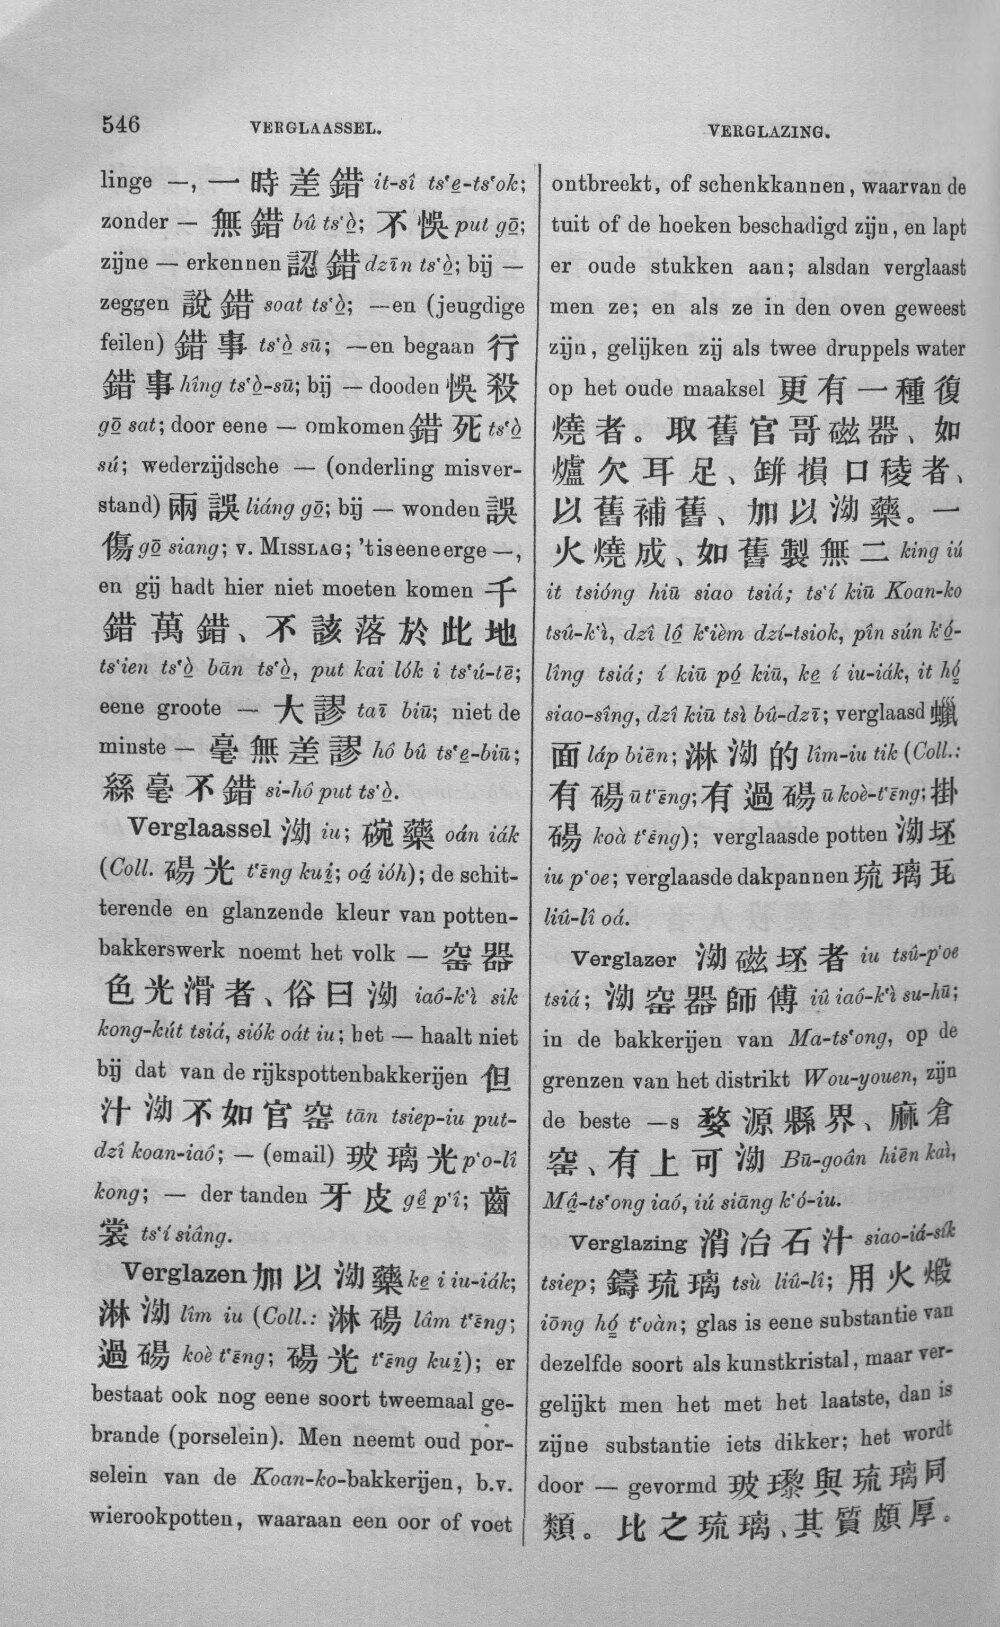 546
VERGLAASSEL.
VERGLAZING.
linge —, 一時差錯 it-sî tsʽe̱-tsʽok;
zonder — 無錯 bû tsʽò̱; 不悞 put gō̱;
zijne — erkennen 認錯 dzīn tsʽò̱; bij —
zeggen 說錯 soat tsʽò̱; —en (jeugdige
feilen) 錯事 tsʽò̱ sū; —en begaan 行
錯事 hîng tsʽò̱-sū; bij — dooden 悞殺
gō̱ sat; door eene — omkomen 錯死 tsʽò̱
sú; wederzijdsche — (onderling misver-
stand) 兩誤 liáng gō̱; bij — wonden 誤
傷 gō̱ siang; v. MISSLAG; 'tis eene erge —,
en gij hadt hier niet moeten komen 千
錯萬錯、不該落於此地
tsʽien tsʽò̱ bān tsʽò̱, put kai lók i tsʽú-tē;
eene groote — 大謬 taī biū; niet de
minste — 毫無差謬 hô bû tsʽe̱-biū;
絲毫不錯 si-hô put tsʽò̱.
Verglaassel 泑 iu; 碗藥 oán iák
(Coll. 碭光 tʽēng kuị; oá ióh); de schit-
terende en glanzende kleur van potten-
bakkerswerk noemt het volk — 窑器
色光滑者、俗曰泑 iaô-kʽì sik
kong-kút tsiá, siók oát iu; het — haalt niet
bij dat van de rijkspottenbakkerijen 但
汁泑不如官窑 tān tsiep-iu put-
dzî koan-iaô; — (email) 玻璃光 pʽo-lî
kong; — der tanden 牙皮 gê̱ pʽî; 齒
裳 tsʽí siâng.
Verglazen 加以泑藥 ke̱ i iu-iák;
淋泑 lîm iu (Coll.: 淋碭 lâm tʽēng;
過碭 koè tʽēng; 碭光 tʽēng kuị); er
bestaat ook nog eene soort tweemaal ge-
brande (porselein). Men neemt oud por-
selein van de Koan-ko-bakkerijen, b.v.
wierookpotten, waaraan een oor of voet
ontbreekt, of schenkkannen, waarvan de
tuit of de hoeken beschadigd zijn, en lapt
er oude stukken aan; alsdan verglaast
men ze; en als ze in den oven geweest
zijn, gelijken zij als twee druppels water
op het oude maaksel 更有一種復
燒者。取舊官哥磁器、如
爐欠耳足、缾損口稜者、
以舊補舊、加以泑藥。一
火燒成、如舊製無二 king iú
it tsióng hiū siao tsiá; tsʽí kiū Koan-ko
tsû-kʽì, dzî lô̱ kʽièm dzí-tsiok, pîn sún kʽó̱-
lîng tsiá; í kiū pó̱ kiū, ke̱ í iu-iák, it hó̱
siao-sîng, dzî kiū tsì bû-dzī; verglaasd 蠟
面 láp biēn; 淋泑的 lîm-iu tik (Coll.:
有碭 ū tʽēng; 有過碭 ū koè-tʽēng; 掛
碭 koà tʽēng); verglaasde potten 泑坯
iu pʽoe; verglaasde dakpannen 琉璃瓦
liû-lî oá.
Verglazer 泑磁坯者 iu tsû-pʽoe
tsiá; 泑窑器師傅 iû iaô-kʽì su-hū;
in de bakkerijen van Ma-tsʽong, op de
grenzen van het distrikt Wou-youen, zijn
de beste —s 婺源縣界、麻倉
窑、有上可泑 Bū-goân hiēn kaì,
Mâ̱-tsʽong iaó, iú siāng kʽó-iu.
Verglazing 消冶石汁 siao-iá-sík
tsiep; 鑄琉璃 tsù liû-lî; 用火煅
iōng hó̱ tʽoàn; glas is eene substantie van
dezelfde soort als kunstkristal, maar ver-
gelijkt men het met het laatste, dan is
zijne substantie iets dikker; het wordt
door — gevormd 玻瓈與琉璃同
類。比之琉璃、其質頗厚。